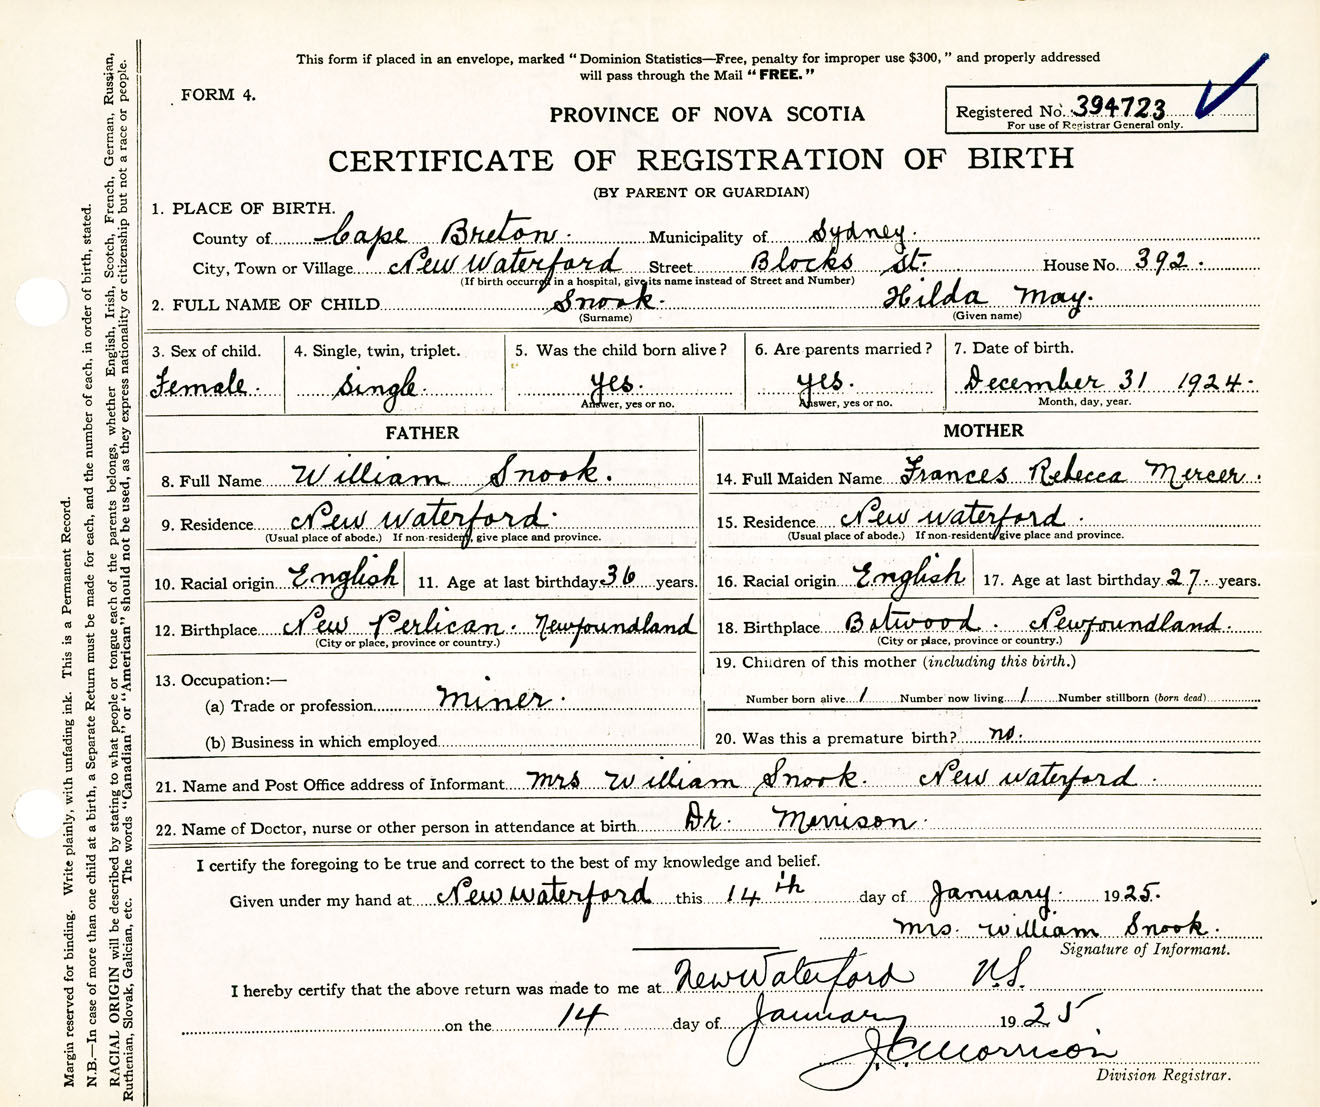 This form if placed in an envelope, marked "Dominion Statistics—Free, penalty for improper use $300," and properly addressed
will pass through the Mail "FREE."
FORM 4.
PROVINCE OF NOVA SCOTIA
Registered No. 394723
For use of Registrar General only.
CERTIFICATE OF REGISTRATION OF BIRTH
(BY PARENT OR GUARDIAN)
1. PLACE OF BIRTH.
County of Cape Breton. Municipality of Sydney.
City, Town or Village New Waterford Street Blocks St. House No. 392.
(If birth occurred in a hospital, give its name instead of Street and Number)
2. FULL NAME OF CHILD Snook. Hilda May.
(Surname) (Given name)
3. Sex of child. 4. Single, twin, triplet. 5. Was the child born alive? 6. Are parents married? 7. Date of birth.
Female. Single. yes. yes. December 31 1924.
Answer, yes or no. Answer, yes or no. Month, day, year.
FATHER MOTHER
8. Full Name William Snook. 14. Full Maiden Name Frances Rebecca Mercer.
9. Residence New Waterford. 15. Residence New Waterford.
(Usual place of abode.) If non-resident, give place and province. (Usual place of abode.) If non-resident give place and province.
10. Racial origin English 11. Age at last birthday 36 years. 16. Racial origin English 17. Age at last birthday 27. years.
12. Birthplace New Perlican. Newfoundland 18. Birthplace Botwood. Newfoundland.
(City or place, province or country.) (City or place, province or country.)
13. Occupation:— 19. Children of this mother (including this birth.)
(a) Trade or profession Miner. Number born alive 1 Number now living 1 Number stillborn (born dead)
(b) Business in which employed 20. Was this a premature birth? no.
21. Name and Post Office address of Informant Mrs William Snook. New Waterford.
22. Name of Doctor, nurse or other person in attendance at birth Dr. Morrison.
I certify the foregoing to be true and correct to the best of my knowledge and belief.
Given under my hand at New Waterford this 14th day of January. 1925.
Mrs. William Snook.
Signature of Informant.
I hereby certify that the above return was made to me at New Waterford N.S.
on the 14 day of January 1925
J.C. Morrison
Division Registrar.
Margin reserved for binding. Write plainly, with unfading ink. This is a Permanent Record.
N.B.—In case of more than one child at a birth, a Separate Return must be made for each, and the number of each, in order of birth, stated.
RACIAL ORIGIN will be described by stating to what people or tongue each of the parents belongs, whether English, Irish, Scotch, French, German, Russian,
Ruthenian, Slovak, Galician, etc. The words "Canadian" or "American" should not be used, as they express nationality or citizenship but not a race or people.